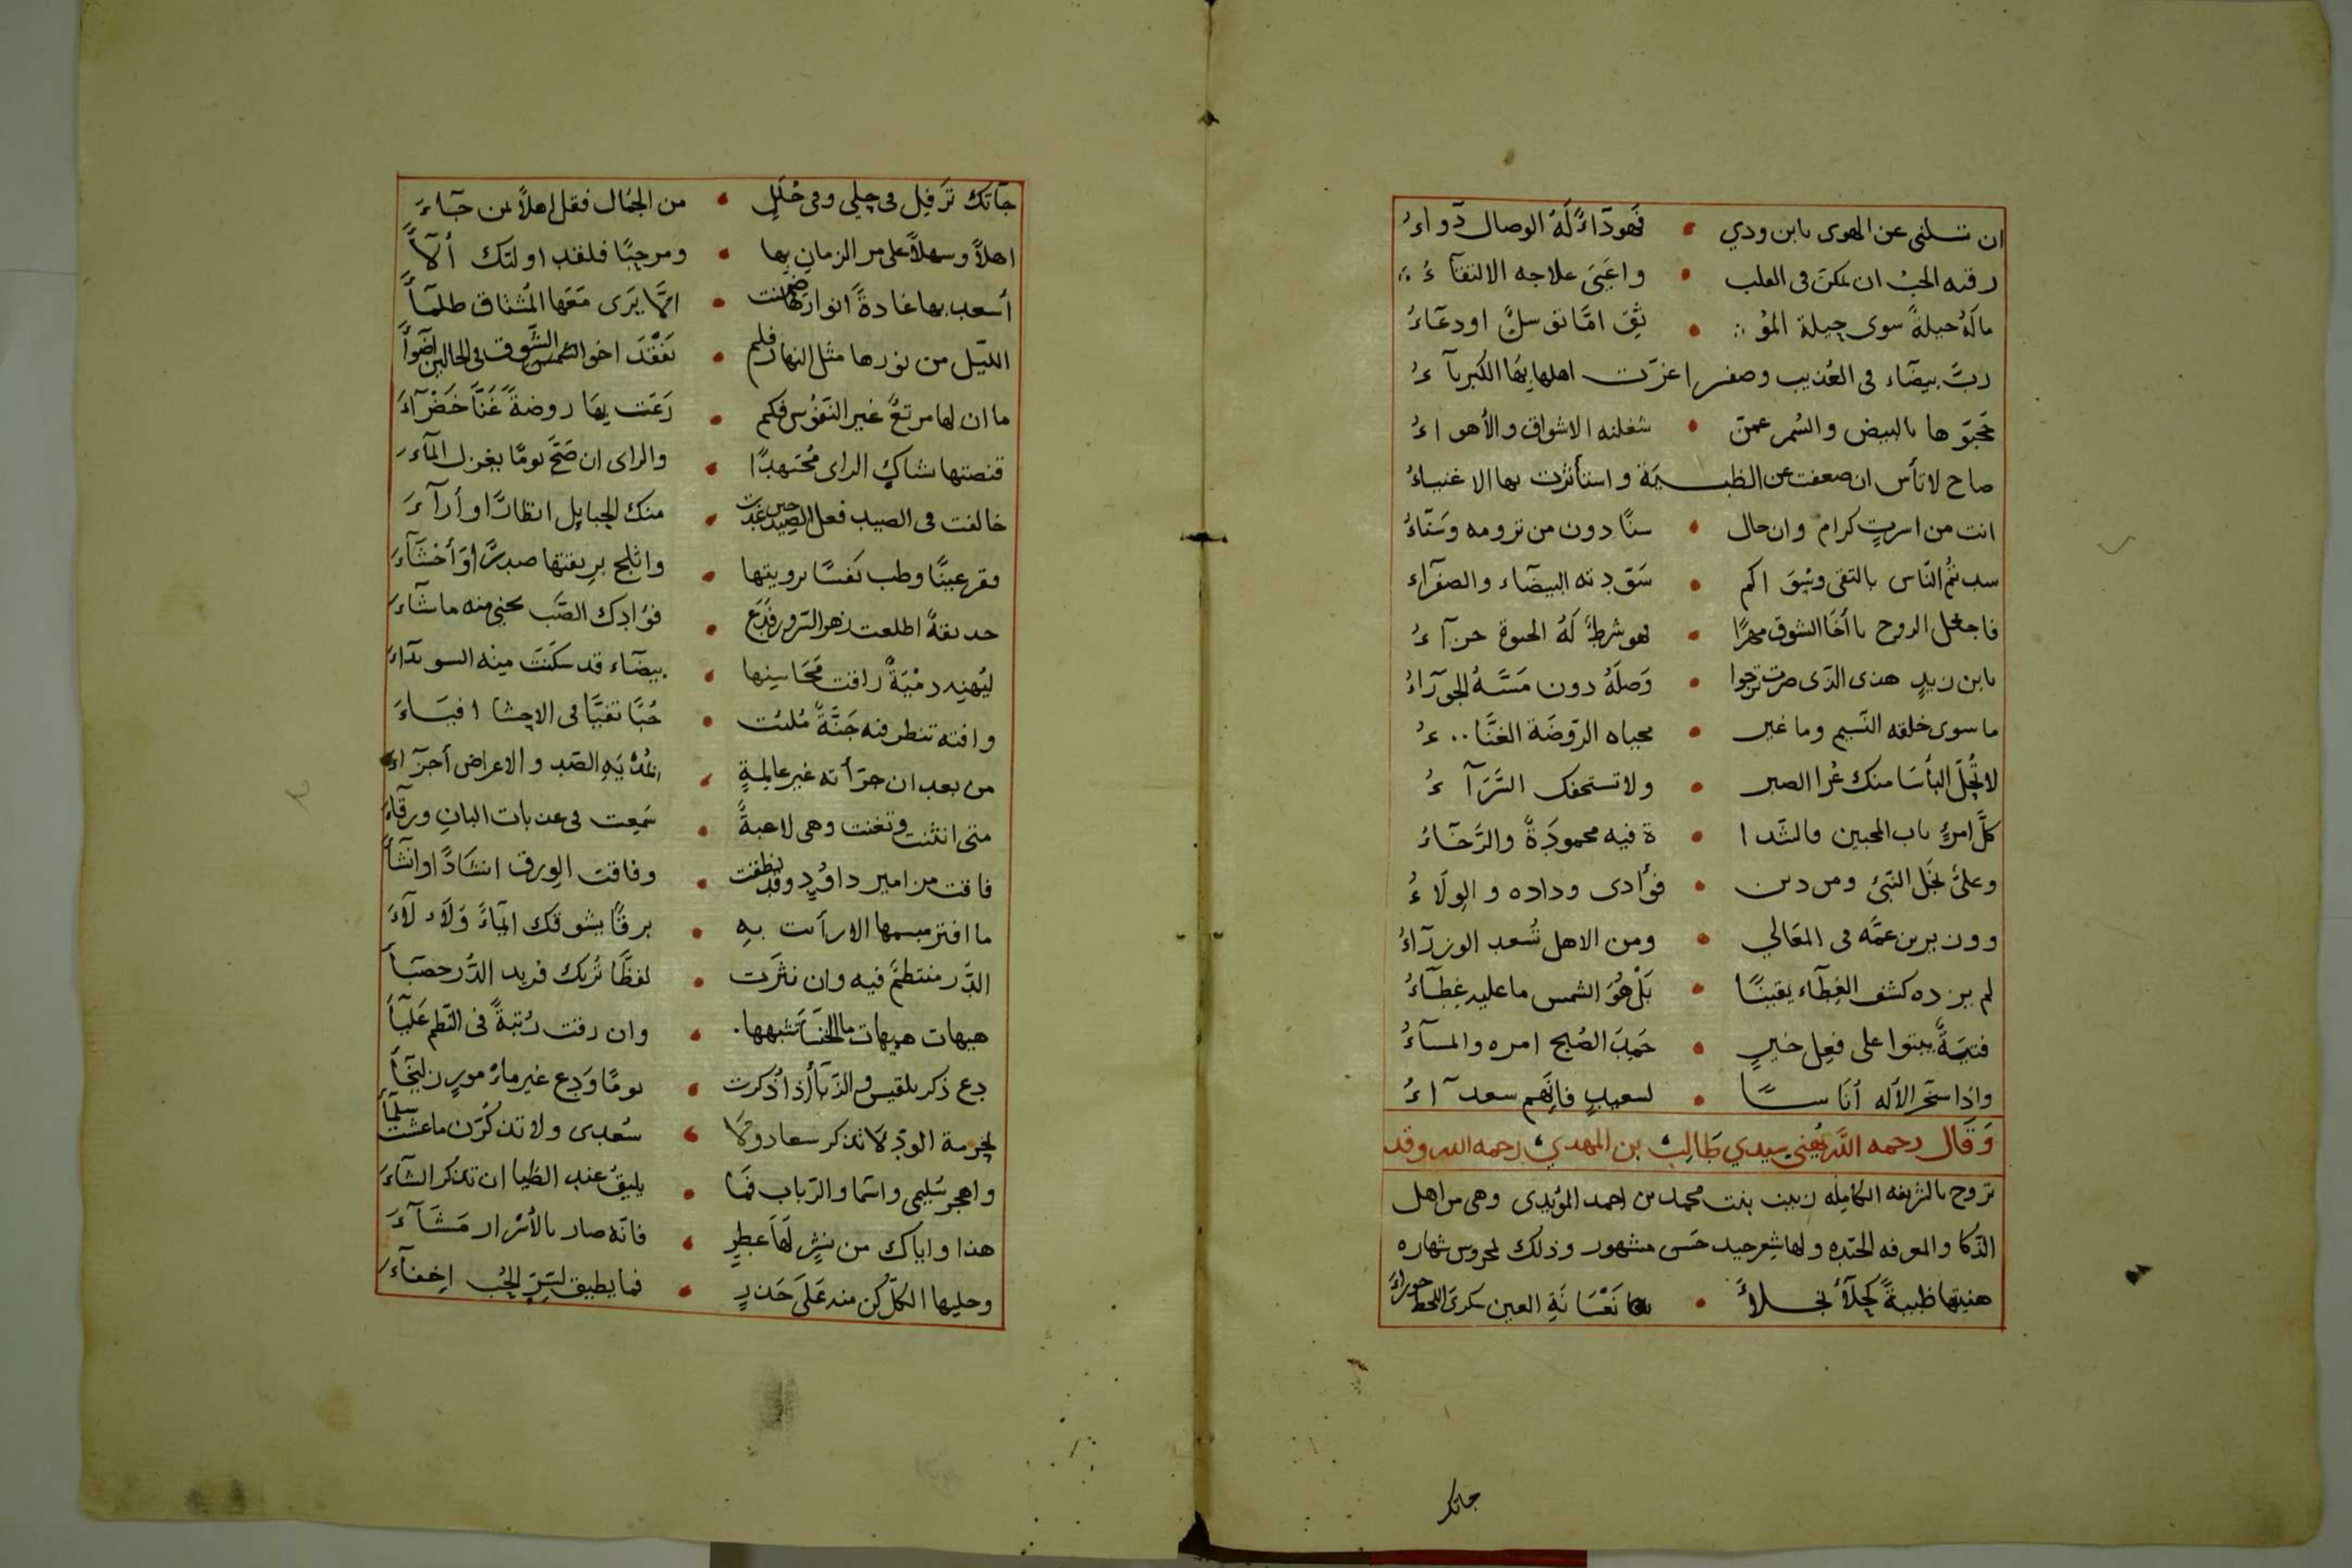 ان تسلنى عن الهوى يابن ودي • فهو دآءٌ لَهُ الوصال دوآءُ
رقيه الحبُ ان تمكن فى القلب • واعيَى علاجه الالتقآءُ
ماله حيلةً سوى حيلة المؤ • ثق امّا توسلٌ او دعآءُ
ربّ بيضآء فى العُذيب وصفرا عزّت اهلها بها الكبريآءُ
حجبّوها بالبيض والسُمر عمن • شغلته الاشواق والأهواءُ
صاح لا تأس ان ضعفت عن الظبية واستأثرت بها الاغنياءُ
انت من اسرةٍ كرام وان حال • سنًا دون من ترومه وسَنآءُ
سدتُم النّاس بالتقى وسوَاكم • سَوّدته البيضآء والصفرآء
فاجعل الروح يا أخَا الشوق مهرًا • فهو شرطٌ لَهُ الحيوة جزآءُ
يابن زيدٍ هذى الذى صرت ترجوا • وَصلَهُ دون مَسّه الجوزآءُ
ما سوى خلقه النّسيم وما غير • محياه الرّوضَة الغنّاءُ
لا تُحِلّ البأسَا منك عُرا الصبر • ولا تستخفك السَّرَآءُ
كلّ امرٍ باب المحبين فالشّدا • ة فيه محمودَةٌ والرَّخآءُ
وعلىُّ نجَل النّبىّ ومن دين • فؤادى وداده والوِلَاءُ
ووزير بن عمَّه فى المعَالي • ومن الاهل تُسعد الوزرآءُ
لم يزده كشف الغِطآء يقينًا • بَلْ هُوَ الشمس ما عليه غِطآءُ
فتيَةٌ بيتوا على فعِل خيرٍ • حَمِدَ الصُبح امره والمسآءُ
واِذا سخّر الآله أنَاسًا • لسعيدٍ فاِنّهم سعدآءُ
وَقال رحمه الله يُهني سيدي طالب بن المهدي رحمه الله وقد
تزوج بالشريفه الكامِله زينب بنت محمد بن احمد المؤيدى وهى من اهل
الذّكا والمعرفه الجيّده ولها شِعر جيد حَسن مشهور وذلك بمحروس شهاره
هنيتها ظبيةً كحلآءُ نجلاءً • نعْسَانَةِ العين سكرَى اللحظ حوراءَ
جاتكَ
جآتك ترَفِل فى حِلي وفى حُلَلٍ • من الجمَال فقل اهلاً بمن جآءَ
اهلاً وسهلاً على مر الزمانِ بها • ومرحبًا فلقد اولتك ألآءً
أسعد بها غادةً انوارُهَا ضمنت • الاّ يَرَى مَعَها المُشتاق ظلمآءً
اللّيل من نورها مثل النهار فلم • تَفْقدَ اخوا الشّوق شمس فى الحالين اضوآءً
ما ان لها مرتعٌ غير النّفوُس فكم • رَعَت بهَا روضةً غَنّا خَضْرَآءَ
قنصتها شاكىِ الراى مُجتهدًا • والراى ان صَحّ يومًا يغزل المآءَ
خالفت فى الصيد فعل الصِيد حين غدت • منك الحِبايل انظارًا وأرآءَ
وقر عينًا وطب نَفسًا برويتها • واثلج برِيقتها صدرًا وَأحْشَآءَ
حديقةٌ اطلعت زهر السّرور فَدَع • فؤادك الصّب يجني منه ماشآءَ
ليُهنِه دمْيَةٌ راقت محَاسِنها • بيضآء قد سكَنَت مِنه السويدآءَ
وافته تنظر فيه جَنَّةً مُلئت • حُبًا تفيّا فى الاحشا افيَاءَ
من بعد ان جزّأته غير عالِمةٍ • الصّد والاعراض أجزآءَ
متى انثنت وتغنت وهى لاعبةٌ • سَمِعت فى عذبات البانِ ورقآءَ
فاقت مزامير داوُدٍ وقد نطقت • وفاقت الوِرق انشَادًا وانشآءَ
ما افتر مبسمها الا رأت بهِ • برقًا يشوقك ايمآءً وَلَاْ لَآءَ
الدُّر منتظمٌ فيه وان نثرَت • لفظًا تُريك فريد الدُّر حصبآءَ
هيهات هيهات ما الخنسَا تَشبهها • وان رقت رُتبةً فى النّظم عَليآءَ
دع ذكر بلقيس والزبّآءُ إذ أذكرت • يومًا وَدِع غير مامُورٍ زليخآءَ
لحِرمة الودِّ لا تذكر سعاد ولا • سُعدى ولا تذكرَن ما عشت سلمآءَ
واهجر سُليمى واسَما والرّباب فمَا • يليق عند الظبا ان تذكر الشآءَ
هذا واياك من نشرٍ لهَا عَطِرٍ • فانّه صار بالأسْرار مَشّآءَ
وحليها الكلّ كُن منه عَلَى حَذرٍ • فما يطيق لسِرِّ الحُب اِخفآءَ